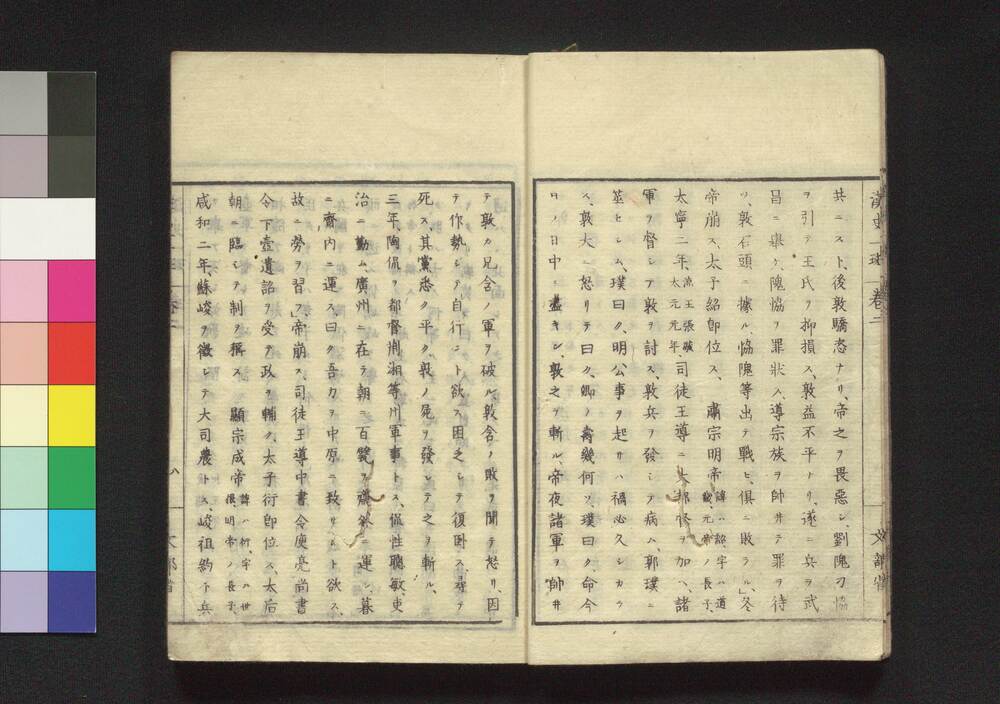 漢史一班 卷三
文部省
共ニスト、後敦驕恣ナリ、帝之ヲ畏惡シ、劉隗刁協
ヲ引テ王氏ヲ抑損ス、敦益不平ナリ、遂ニ兵ヲ武
昌ニ擧ケ、隗協ヲ罪狀ス、導宗族ヲ帥井テ罪ヲ待
ツ、敦石頭ニ據ル、協隗等出テ戰ヒ、俱ニ敗ラル、冬
帝崩ス、太子紹卽位ス、 肅宗明帝 諱ハ紹、字ハ道畿、元帝ノ長子、
太寧二年、涼王張駿太元元年、司徒王導ニ大都督ヲ加ヘ、諸
軍ヲ督シテ敦ヲ討ス、敦兵ヲ發シテ病ム、郭璞ニ
筮セシム、璞曰ク、明公事ヲ起サハ禍必久シカラ
ス、敦大ニ怒リテ曰ク、卿ノ壽幾何ソ、璞曰ク命今
日ノ日中ニ盡キン、敦之ヲ斬ル帝夜諸軍ヲ帥井
テ敦カ兄含ノ軍ヲ破ル敦含ノ敗ヲ聞テ怒リ、因
テ作勢シテ自行ント欲ス困乏シテ復臥ス、尋テ
死ス、其黨悉ク平ク、敦ノ尸ヲ發シテ之ヲ斬ル、
三年、陶侃ヲ都督荊湘等州軍事トス、侃性聰敏吏
治ニ勤ム、廣州ニ在テ朝ニ百甓ヲ齋外ニ運シ、暮
ニ齋內ニ運ス曰ク吾力ヲ中原ニ致サント欲ス、
故ニ勞ヲ習フ、帝崩ス、司徒王導中書令庾亮尚書
令卞壼遺詔ヲ受ケ政ヲ輔ク、太子衍卽位ス、太后
朝ニ臨ミテ制ヲ稱ス、 顯宗成帝 諱ハ衍、字ハ世根、明帝ノ長子、
咸和二年蘇峻ヲ徵シテ大司農トス、峻祖約下兵
八
文部省